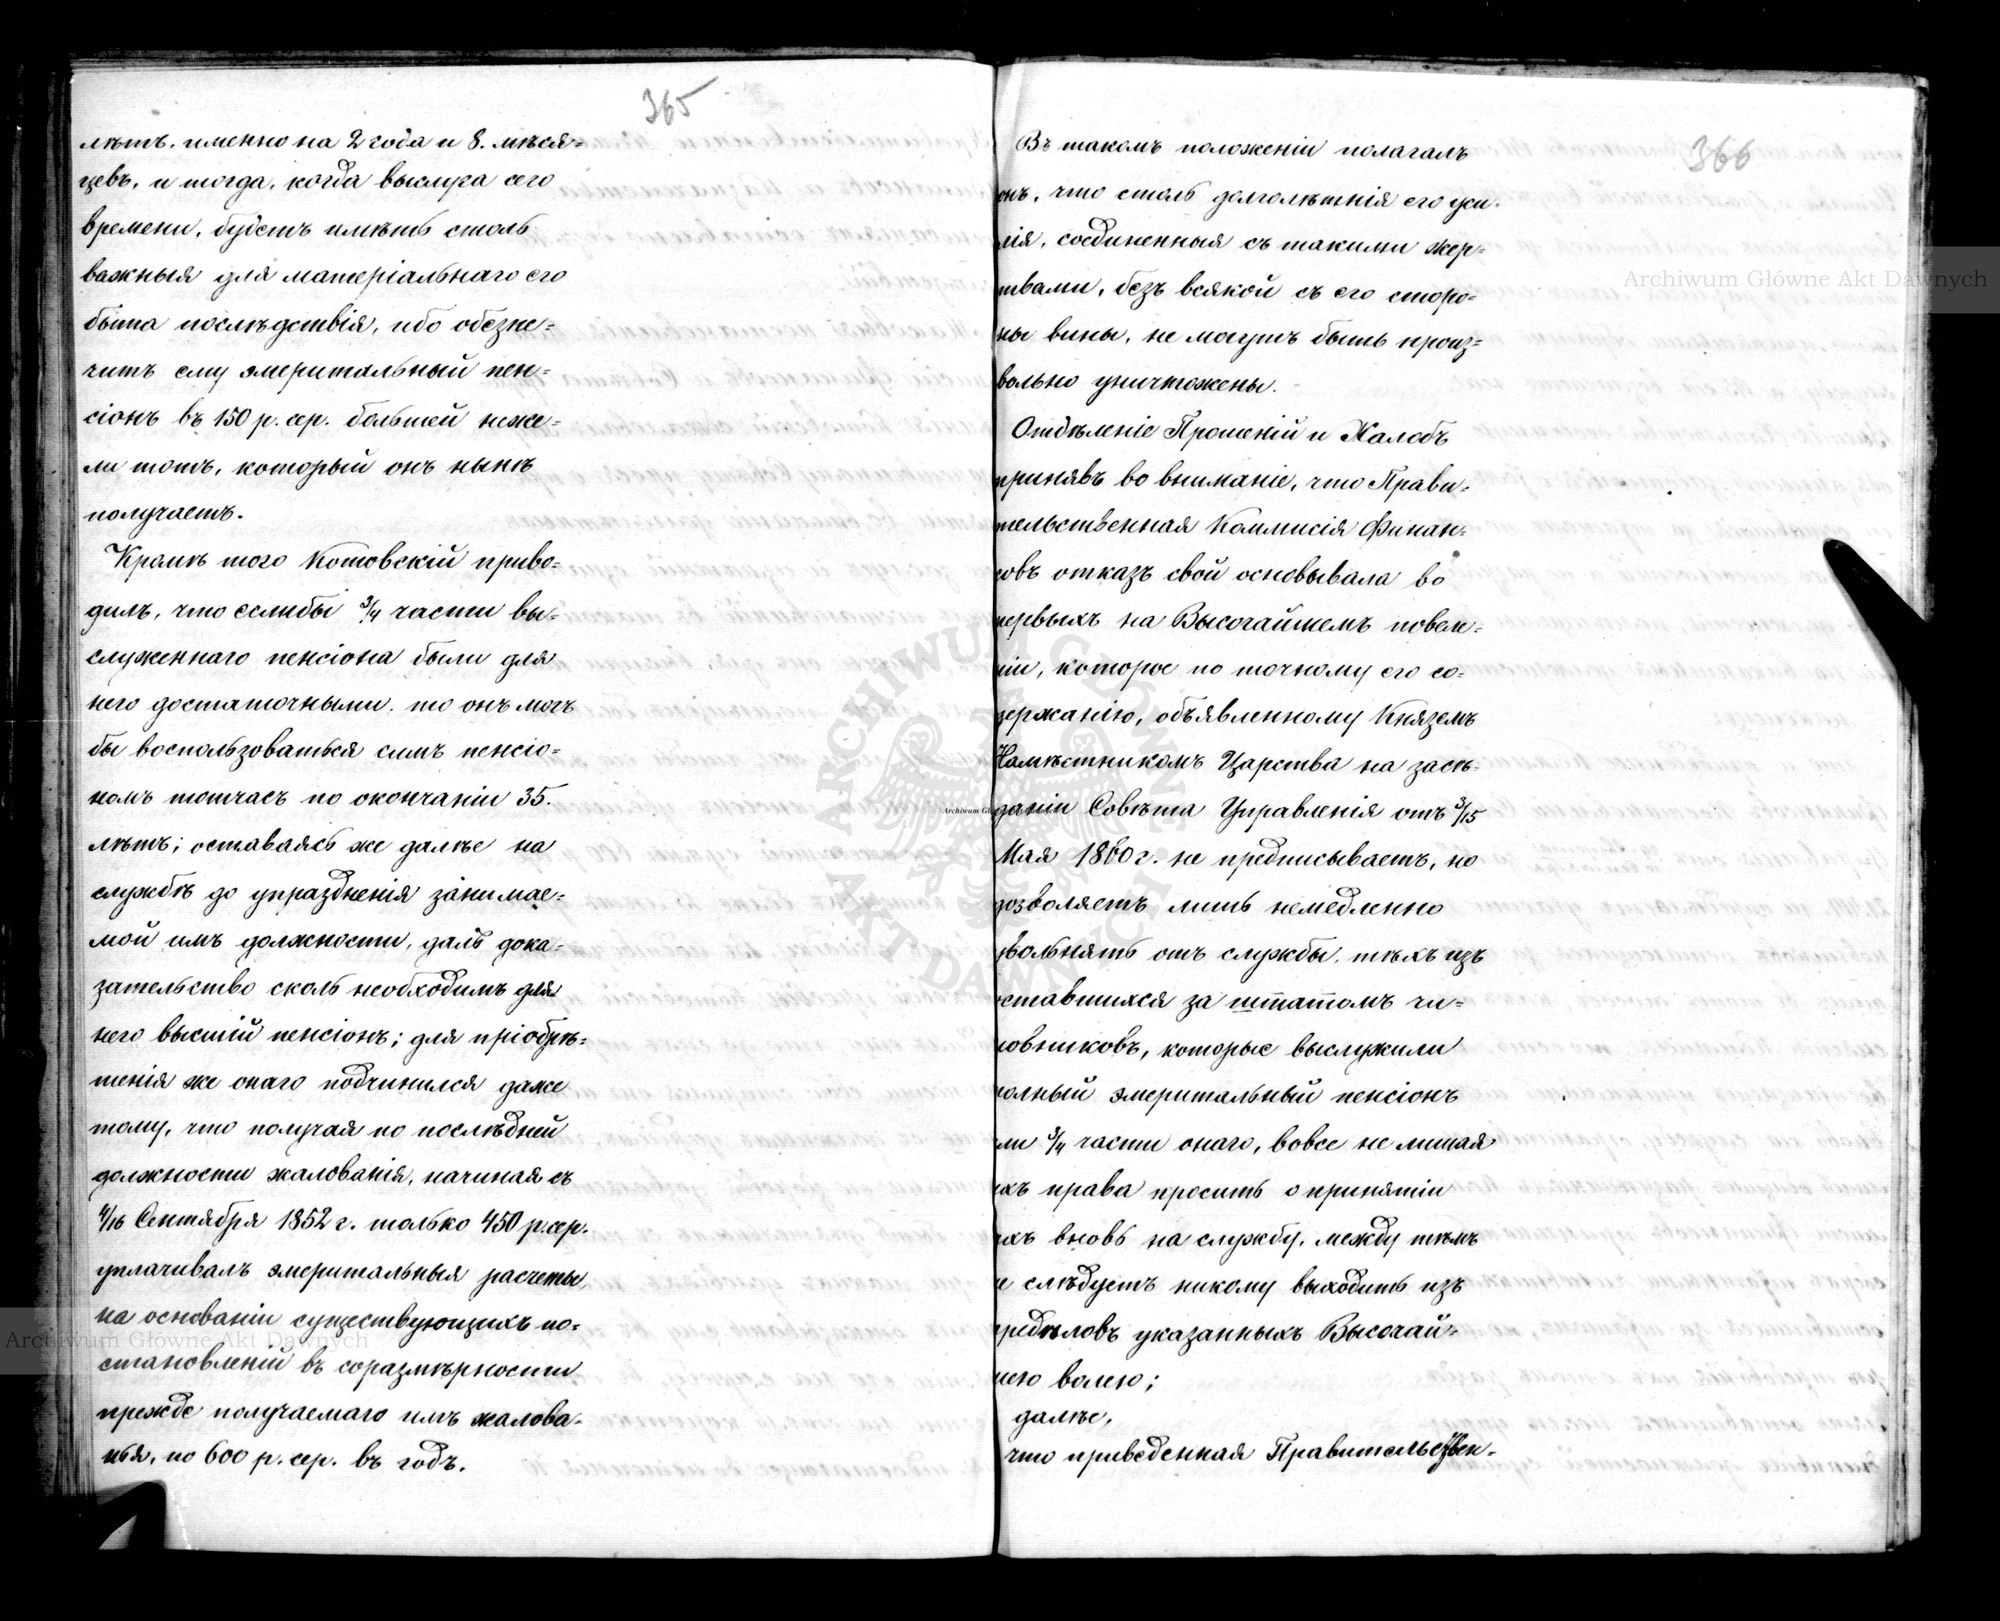 365
лѣтъ, именно на 2 года и 8. мѣся=
цевъ, и тогда, когда выслуга сего
времени, будетъ имѣть столь
важныя для матеріальнаго его
быта послѣдствія, ибо обезпе=
читъ ему эмеритальный пен=
сіонъ въ 150 р. сер. большей неже=
ли тотъ, который онъ нынѣ
получаетъ.
Кромѣ того Котовскій приво=
дилъ, что еслибы 3/4 части вы=
служеннаго пенсіона были для
него достаточными, то онъ могъ
бы воспользоваться симъ пенсіо=
номъ тотчасъ по окончаніи 35.
лѣтъ; оставаясь же далѣе на
службѣ до упраздненія занимае=
мой имъ должности, далъ дока=
зательство сколь необходимъ для
него высшій пенсіонъ; для пріобрѣ=
тенія же онаго подчинился даже
тому, что получая по послѣдней
должности жалованія, начиная съ
4/16 Сентября 1852 г. только 450 р. сер.
уплачивалъ эмеритальныя расчеты,
на основаніи существующихъ по=
становленій въ соразмѣрности
прежде получаемаго имъ жалова=
нья, по 600 р. сер. въ годъ.
366
Въ такомъ положеніи полагалъ
онъ, что столь долголѣтнія его уси=
лія, соединенныя съ такими жер=
твами, безъ всякой съ его сторо=
ны вины, не могутъ быть произ=
вольно уничтожены.
Отдѣленіе Прошеній и Жалобъ
принявъ во вниманіе, что Прави=
тельственная Коммисія Финан=
совъ отказъ свой основывала во
первыхъ на Высочайшемъ повелѣ=
ніи, которое по точному его со=
держанію, объявленному Княземъ
Намѣстникомъ Царства на засѣ=
даніи Совѣта Управленія отъ 3/15
Мая 1860 г. не предписываетъ, но
дозволяетъ лишь немедленно
увольнять отъ службы, тѣхъ изъ
оставшихся за штатомъ чи=
новниковъ, которые выслужили
полный эмеритальный пенсіонъ
или 3/4 части онаго, вовсе не лишая
ихъ права просить о принятіи
ихъ вновь на службу, между тѣмъ
не слѣдуетъ никому выходить изъ
предѣловъ указанныхъ Высочай=
шею волею;
далѣе,
что приведенная Правительствен=
Archiwum Główne Akt Dawnych
Archiwum Główne Akt Dawnych
ARCHIWUM GŁÓWNE AKT DAWNYCH